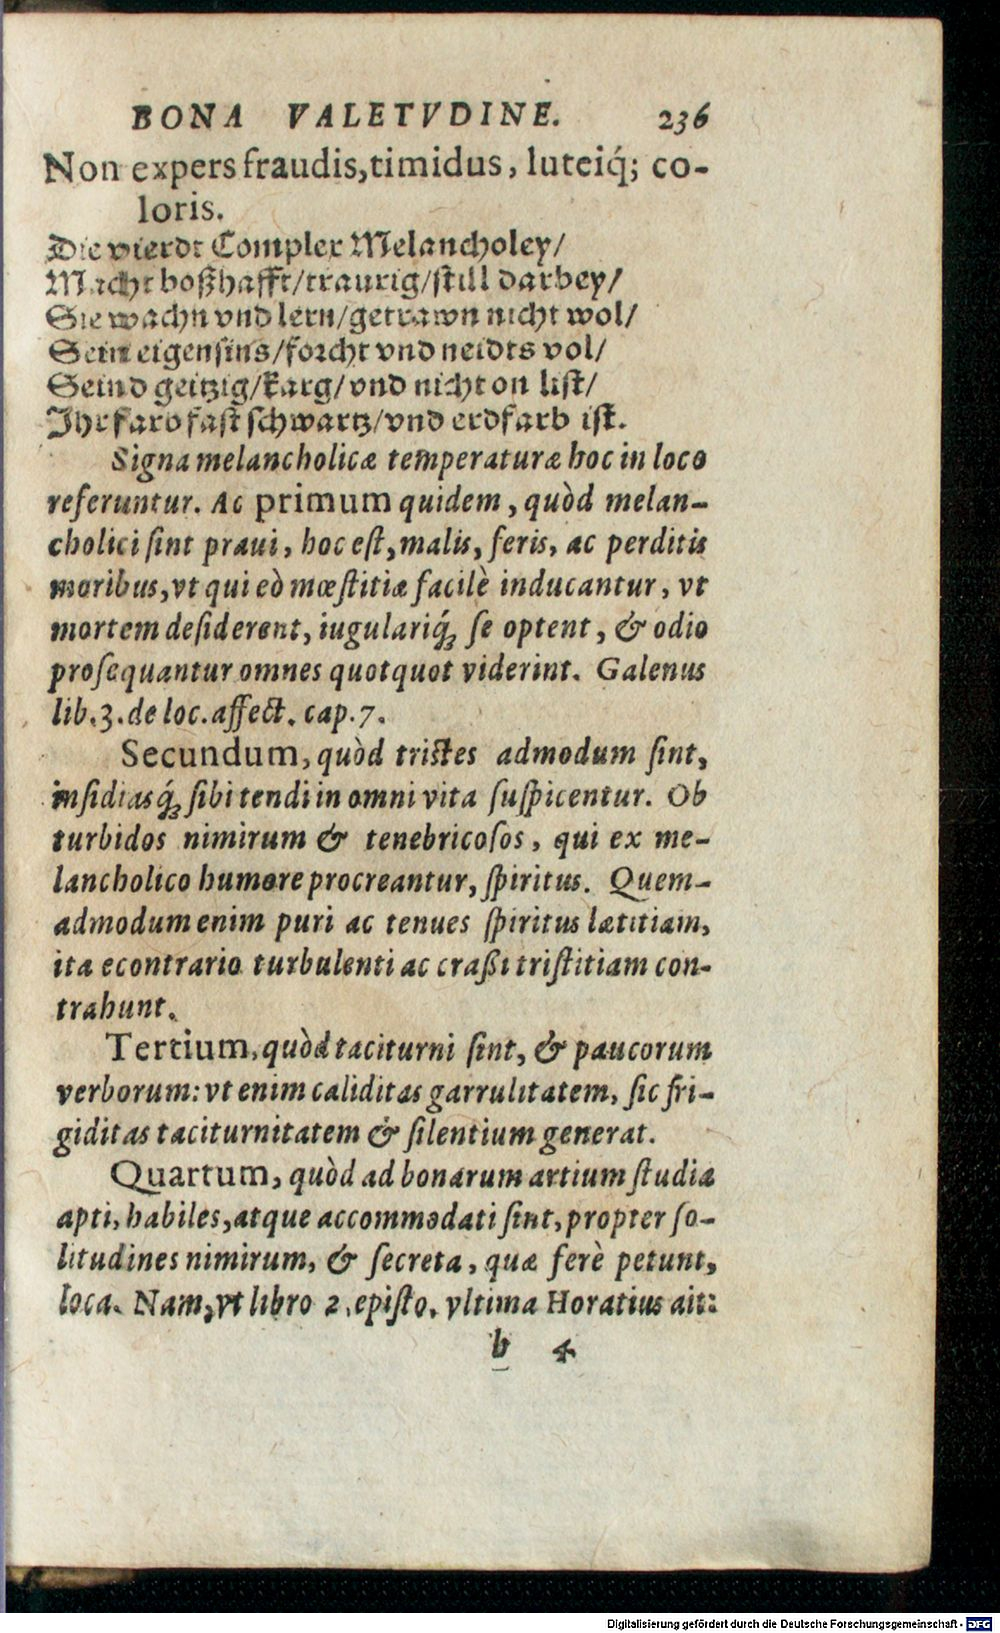 BONA VALETVDINE. 236
Non expers fraudis, timidus, luteiq́; co-
loris.
Die vierdt Complex Melancholey/
Macht boßhafft/traurig/still darbey/
Sie wachn vnd lern/getrawn nicht wol/
Sein eigensins/forcht vnd neidts vol/
Seind geitzig/karg/vnd nicht on list/
Ihr farb fast schwartz/vnd erdfarb ist.
Signa melancholicæ temperaturæ hoc in loco
referuntur. Ac primum quidem, quòd melan-
cholici sint praui, hoc est, malis, feris, ac perditis
moribus, vt qui eò mœstitiæ facilè inducantur, vt
mortem desiderent, iugulariq́ꝫ se optent, & odio
prosequantur omnes quotquot viderint. Galenus
lib. 3. de loc. affect. cap. 7.
Secundum, quòd tristes admodum sint,
insidiasq́ꝫ sibi tendi in omni vita suspicentur. Ob
turbidos nimirum & tenebricosos, qui ex me-
lancholico humore procreantur, spiritus. Quem-
admodum enim puri ac tenues spiritus lætitiam,
ita econtrario turbulenti ac craßi tristitiam con-
trahunt.
Tertium, quòd taciturni sint, & paucorum
verborum: vt enim caliditas garrulitatem, sic fri-
giditas taciturnitatem & silentium generat.
Quartum, quòd ad bonarum artium studia
apti, habiles, atque accommodati sint, propter so-
litudines nimirum, & secreta, quæ ferè petunt,
loca. Nam, vt libro 2. episto. vltima Horatius ait:
b 4
Digitalisierung gefördert durch die Deutsche Forschungsgemeinschaft - DFG